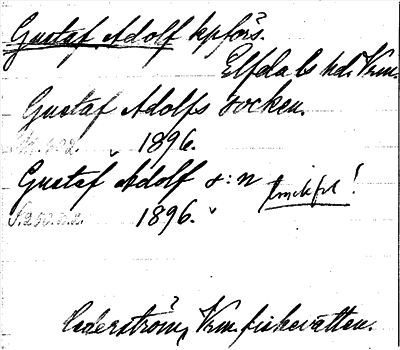 Gustaf Adolf kpförs.
Elfdals hd. Vrm.
Gustaf Adolfs socken.
1896.
Gustaf Adolf s:n
1896.
Cederström, Vrm. fiskevatten.